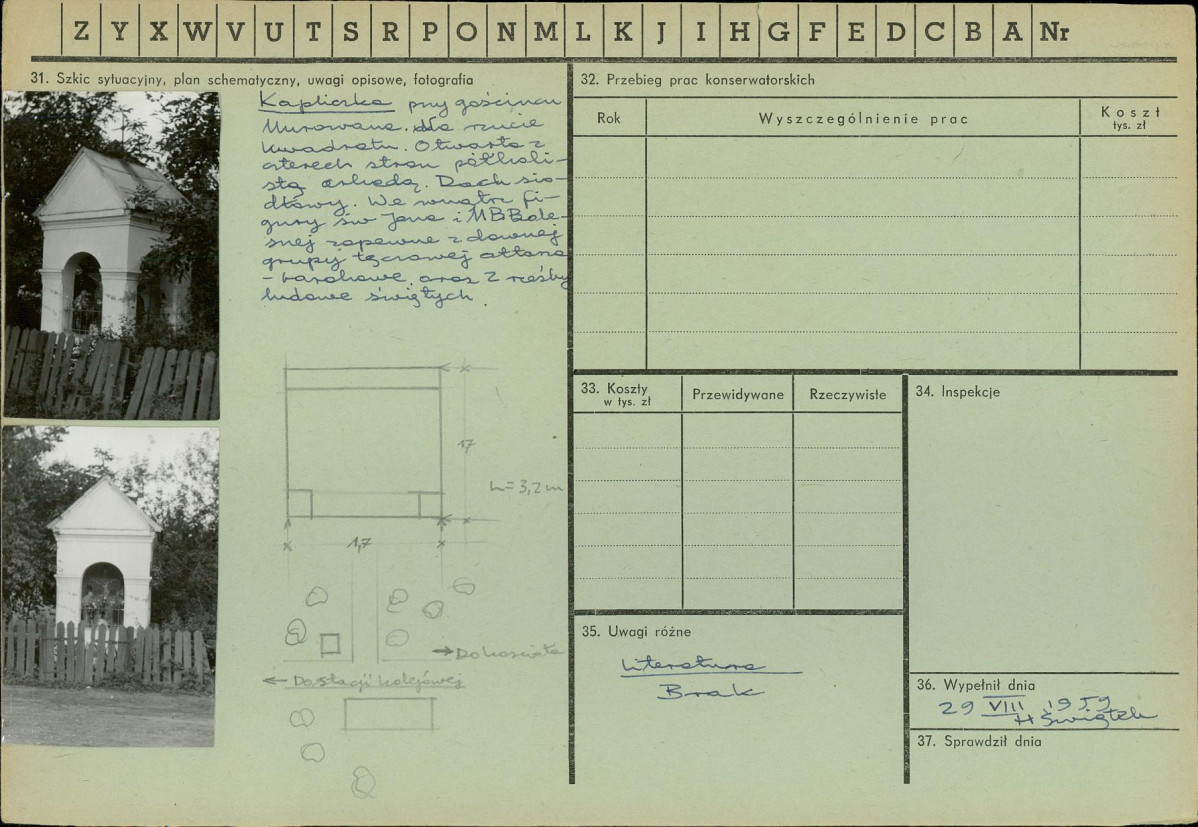 Z Y X W V U T S R P O N M L K J I H G F E D C B A Nr
31. Szkic sytuacyjny, plan schematyczny, uwagi opisowe, fotografia
Kapliczka przy gościńcu
Murowana. Na rzucie
kwadratu. Otwarta z
czterech stron półkoli-
stą arkadą. Dach sio-
dłowy. We wnątrz fi-
gury św Jana i MB Bole-
snej zapewne z dawnej
grupy tęczowej
- barokowe, oraz 2 rzeźby
ludowe świętych.
17
h=3,2m
1,7
→ Do kościoła
← Do stacji kolejowej
32. Przebieg prac konserwatorskich
Rok
Wyszczególnienie prac
Koszt
tys. zł
33. Koszty
w tys. zł
Przewidywane
Rzeczywiste
34. Inspekcje
35. Uwagi różne
Literatura
Brak
36. Wypełnił dnia
29 VIII 1959
H Świątek
37. Sprawdził dnia